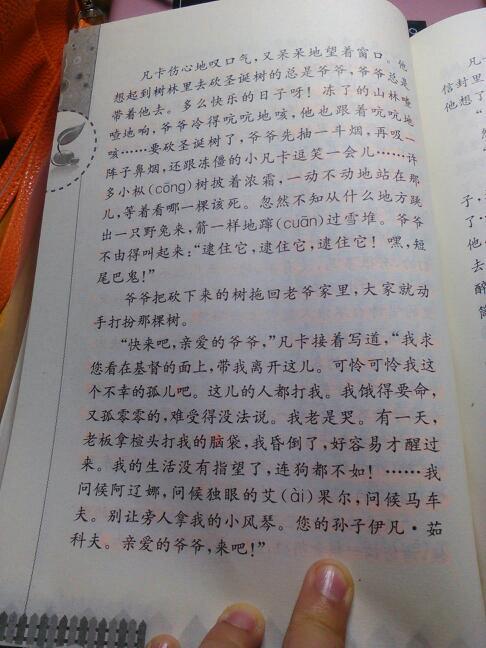 凡卡伤心地叹口气，又呆呆地望着窗口。他
想起到树林里去砍圣诞树的总是爷爷，爷爷总是
带着他去。多么快乐的日子呀！冻了的山林喳
喳地响，爷爷冷得吭吭地咳，他也跟着吭吭地
咳……要砍圣诞树了，爷爷先抽一斗烟，再吸一
阵子鼻烟，还跟冻僵的小凡卡逗笑一会儿……许
多小枞(cōng)树披着浓霜，一动不动地站在那
儿，等着看哪一棵该死。忽然不知从什么地方跳
出一只野兔来，箭一样地蹿(cuān)过雪堆。爷爷
不由得叫起来：“逮住它，逮住它，逮住它！嘿，短
尾巴鬼！”
爷爷把砍下来的树拖回老爷家里，大家就动
手打扮那棵树。
“快来吧，亲爱的爷爷，”凡卡接着写道，“我求
您看在基督的面上，带我离开这儿。可怜可怜我这
个不幸的孤儿吧。这儿的人都打我。我饿得要命，
又孤零零的，难受得没法说。我老是哭。有一天，
老板拿楦头打我的脑袋，我昏倒了，好容易才醒过
来。我的生活没有指望了，连狗都不如！……我
问候阿辽娜，问候独眼的艾(ài)果尔，问候马车
夫。别让旁人拿我的小风琴。您的孙子伊凡·茹
科夫。亲爱的爷爷，来吧！”
凡
信封里
他想了
子，
了
他
去
醉